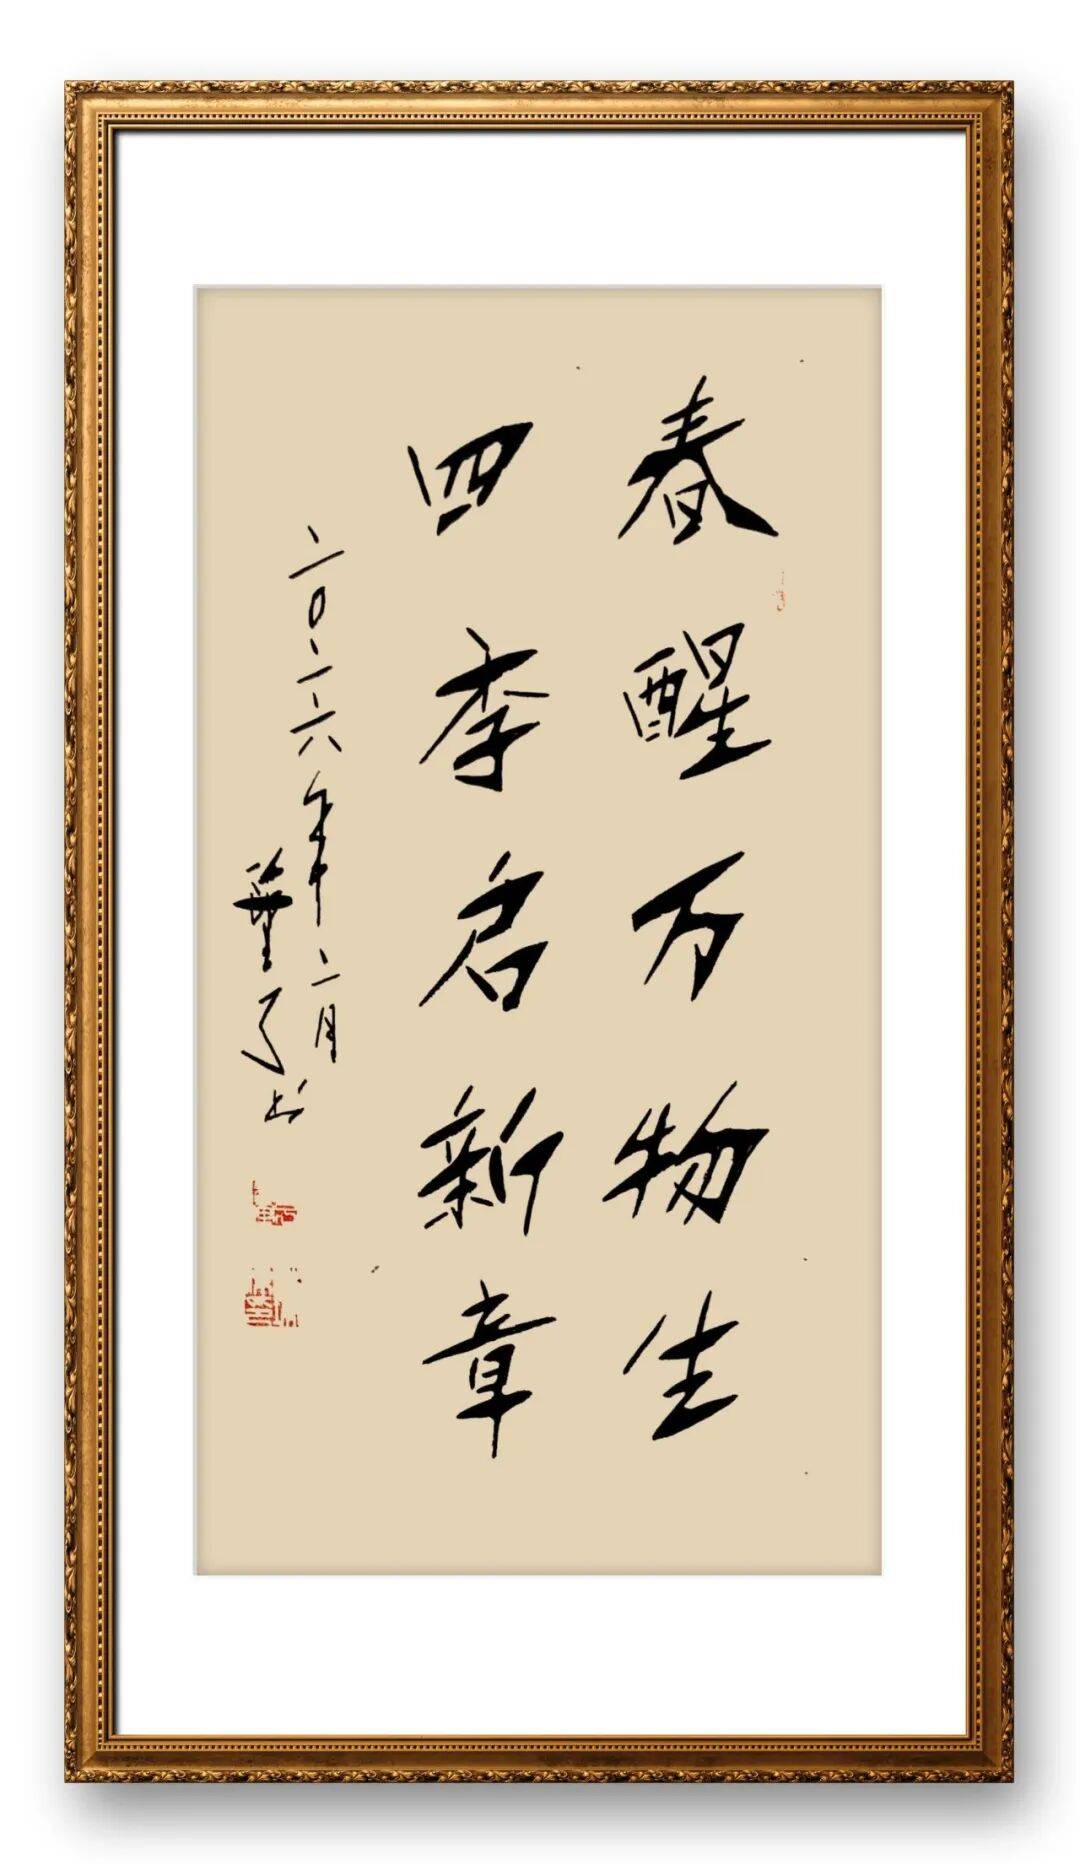 春醒万物生
四季启新章
二〇二六年二月
華了书